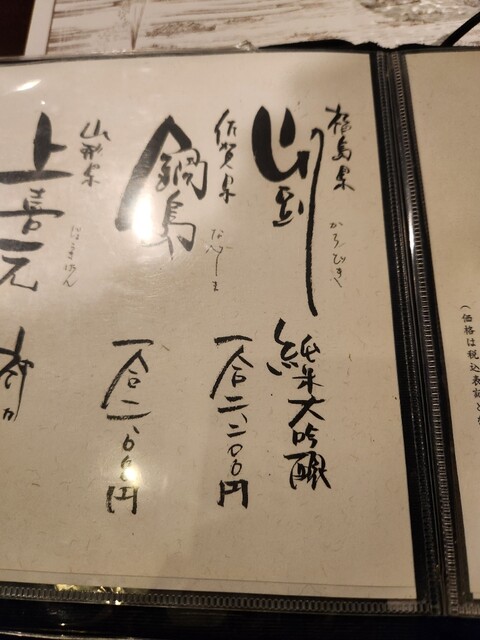 (価格は税込表記と
福島県
純米大吟醸
一合二、二〇〇円
佐賀県
鍋島
なべしま
一合二、〇〇〇円
山形県
上喜元
じょうきげん